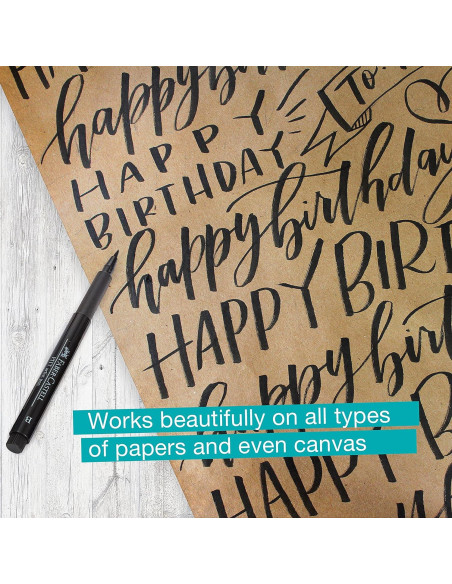 HAPPY
happybir
HAPPY
BIRTHDAY
TO:
happybirthday
HAPPY BIRT
happy birt
HAPPY BIR
HAPPY
FABER-CASTELL
Works beautifully on all types
of papers and even canvas